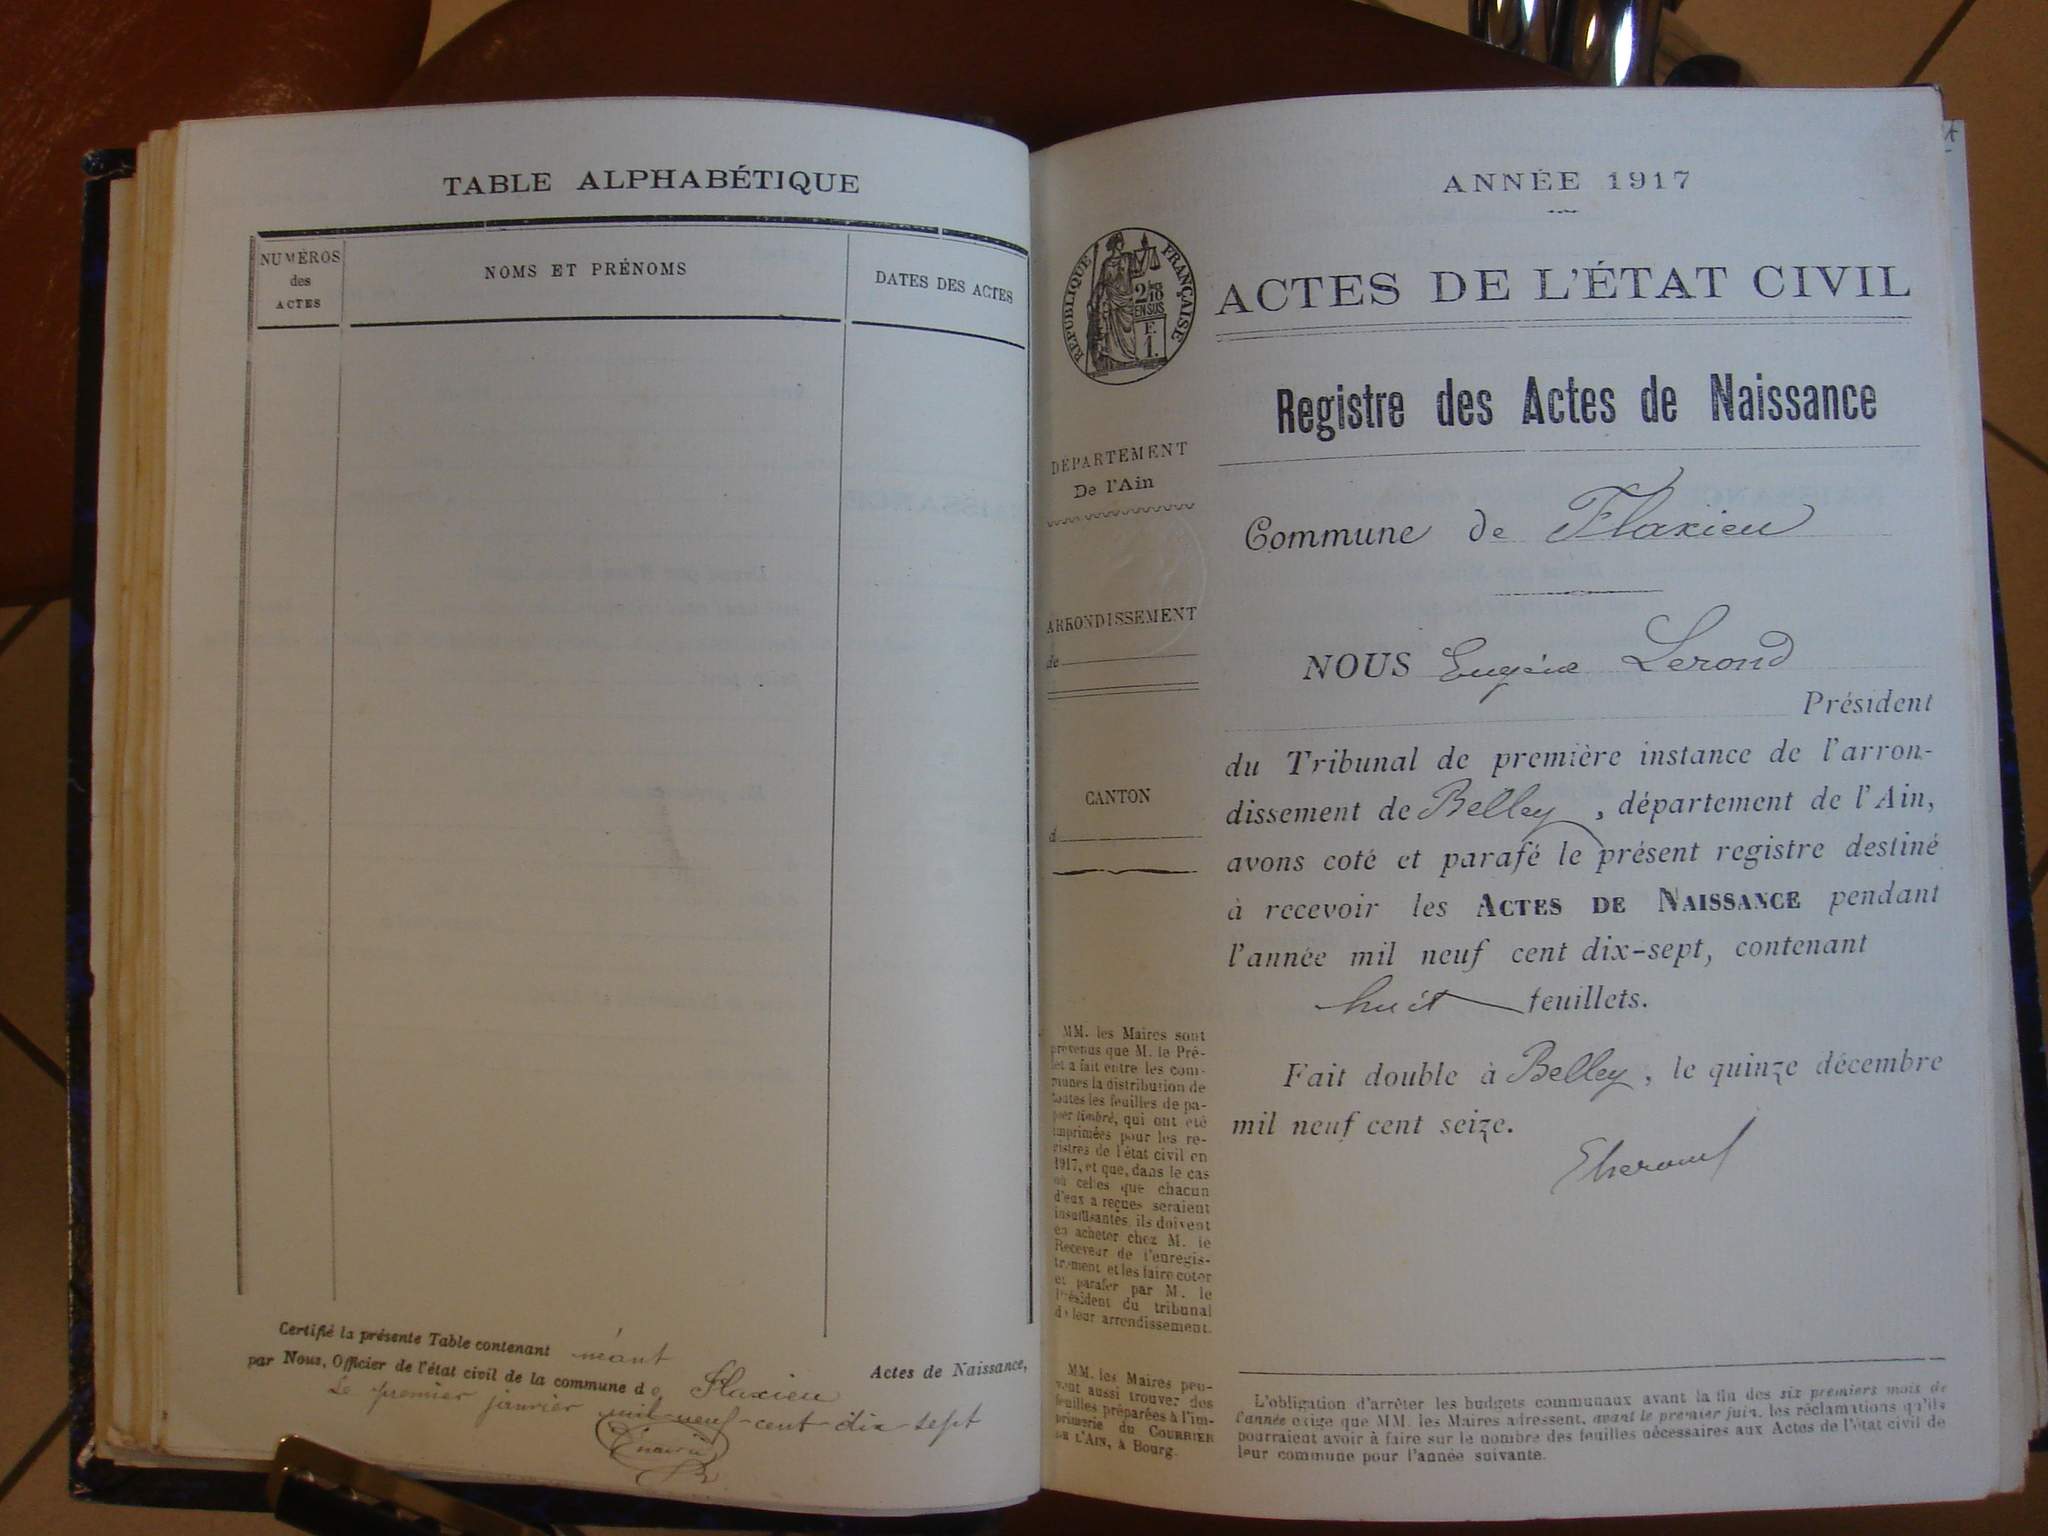 TABLE ALPHABÉTIQUE
NUMÉROS
des
ACTES
NOMS ET PRÉNOMS
DATES DES ACTES
Certifié la présente Table contenant néant Actes de Naissance,
par Nous, Officier de l'état civil de la commune de Flaxieu
Le premier janvier mil-neuf-cent-dix sept
ANNÉE 1917
RÉPUBLIQUE FRANÇAISE
2/10
EN SUS
F.
1.
ACTES DE L'ÉTAT CIVIL
Registre des Actes de Naissance
DÉPARTEMENT
De l'Ain
ARRONDISSEMENT
de
CANTON
d
MM. les Maires sont
prévenus que M. le Pré-
fet a fait entre les com-
munes la distribution de
toutes les feuilles de pa-
pier timbré, qui ont été
imprimées pour les re-
gistres de l'état civil en
1917, et que, dans le cas
où celles que chacun
d'eux a reçues seraient
insuffisantes, ils doivent
en acheter chez M. le
Receveur de l'enregis-
trement et les faire coter
et parafer par M. le
Président du tribunal
de leur arrondissement.
MM. les Maires peu-
vent aussi trouver des
feuilles préparées à l'im-
primerie du COURRIER
DE L'AIN, à Bourg.
Commune de Flaxieu
NOUS Eugène Lerond
Président
du Tribunal de première instance de l'arron-
dissement de Belley, département de l'Ain,
avons coté et parafé le présent registre destiné
à recevoir les ACTES DE NAISSANCE pendant
l'année mil neuf cent dix-sept, contenant
huit feuillets.
Fait double à Belley, le quinze décembre
mil neuf cent seize.
L'obligation d'arrêter les budgets communaux avant la fin des six premiers mois de
l'année exige que MM. les Maires adressent, avant le premier juin, les réclamations qu'ils
pourraient avoir à faire sur le nombre des feuilles nécessaires aux Actes de l'état civil de
leur commune pour l'année suivante.